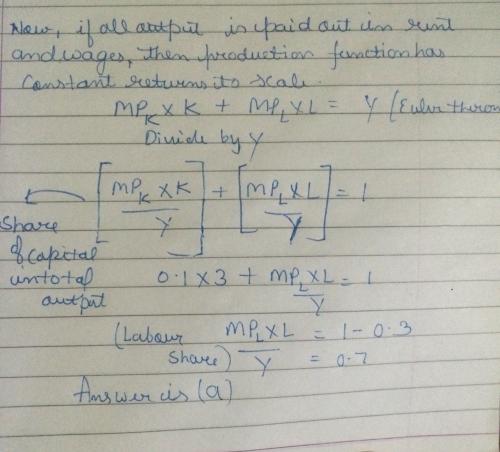 Now, if all output is paid out in rent
and wages, then production function has
Constant returns to scale.
MP_K x K + MP_L x L = Y (Euler thron
Divide by Y
[MP_K x K / Y] + [MP_L x L / Y] = 1
Share
of capital
in total
output
0.1 x 3 + MP_L x L / Y = 1
(Labour Share) MP_L x L / Y = 1 - 0.3
= 0.7
Answer is (a)